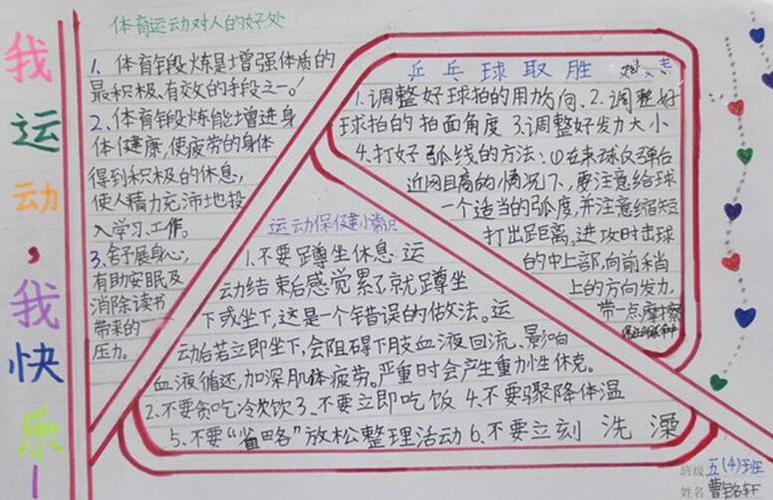 我运动，我快乐！
体育运动对人的好处
1、体育锻炼是增强体质的
最积极、有效的手段之一！
2、体育锻炼能增进身
体健康，使疲劳的身体
得到积极的休息，
使人精力充沛地投
入学习、工作。
3、舒展身心，
有助安眠及
消除读书
带来的
压力。
乒乓球取胜
1、调整好球拍的用力方向、2、调整好
球拍的拍面角度 3、调整好发力大小
4、打好弧线的方法：①在来球反弹后
近网且高的情况下，要注意给球
一个适当的弧度，并注意缩短
打出距离，进攻时击球
的中上部，向前稍
上的方向发力，
带一点摩擦
运动保健小常识
1、不要蹲坐休息。运
动结束后感觉累了就蹲坐
下或坐下，这是一个错误的做法。运
动后若立即坐下，会阻碍下肢血液回流、影响
血液循还，加深肌体疲劳。严重时会产生重力性休克。
2、不要贪吃冷饮 3、不要立即吃饭 4、不要骤降体温
5、不要“省略”放松整理活动 6、不要立刻 洗 澡
班级 五(4)班
姓名 曹铭轩